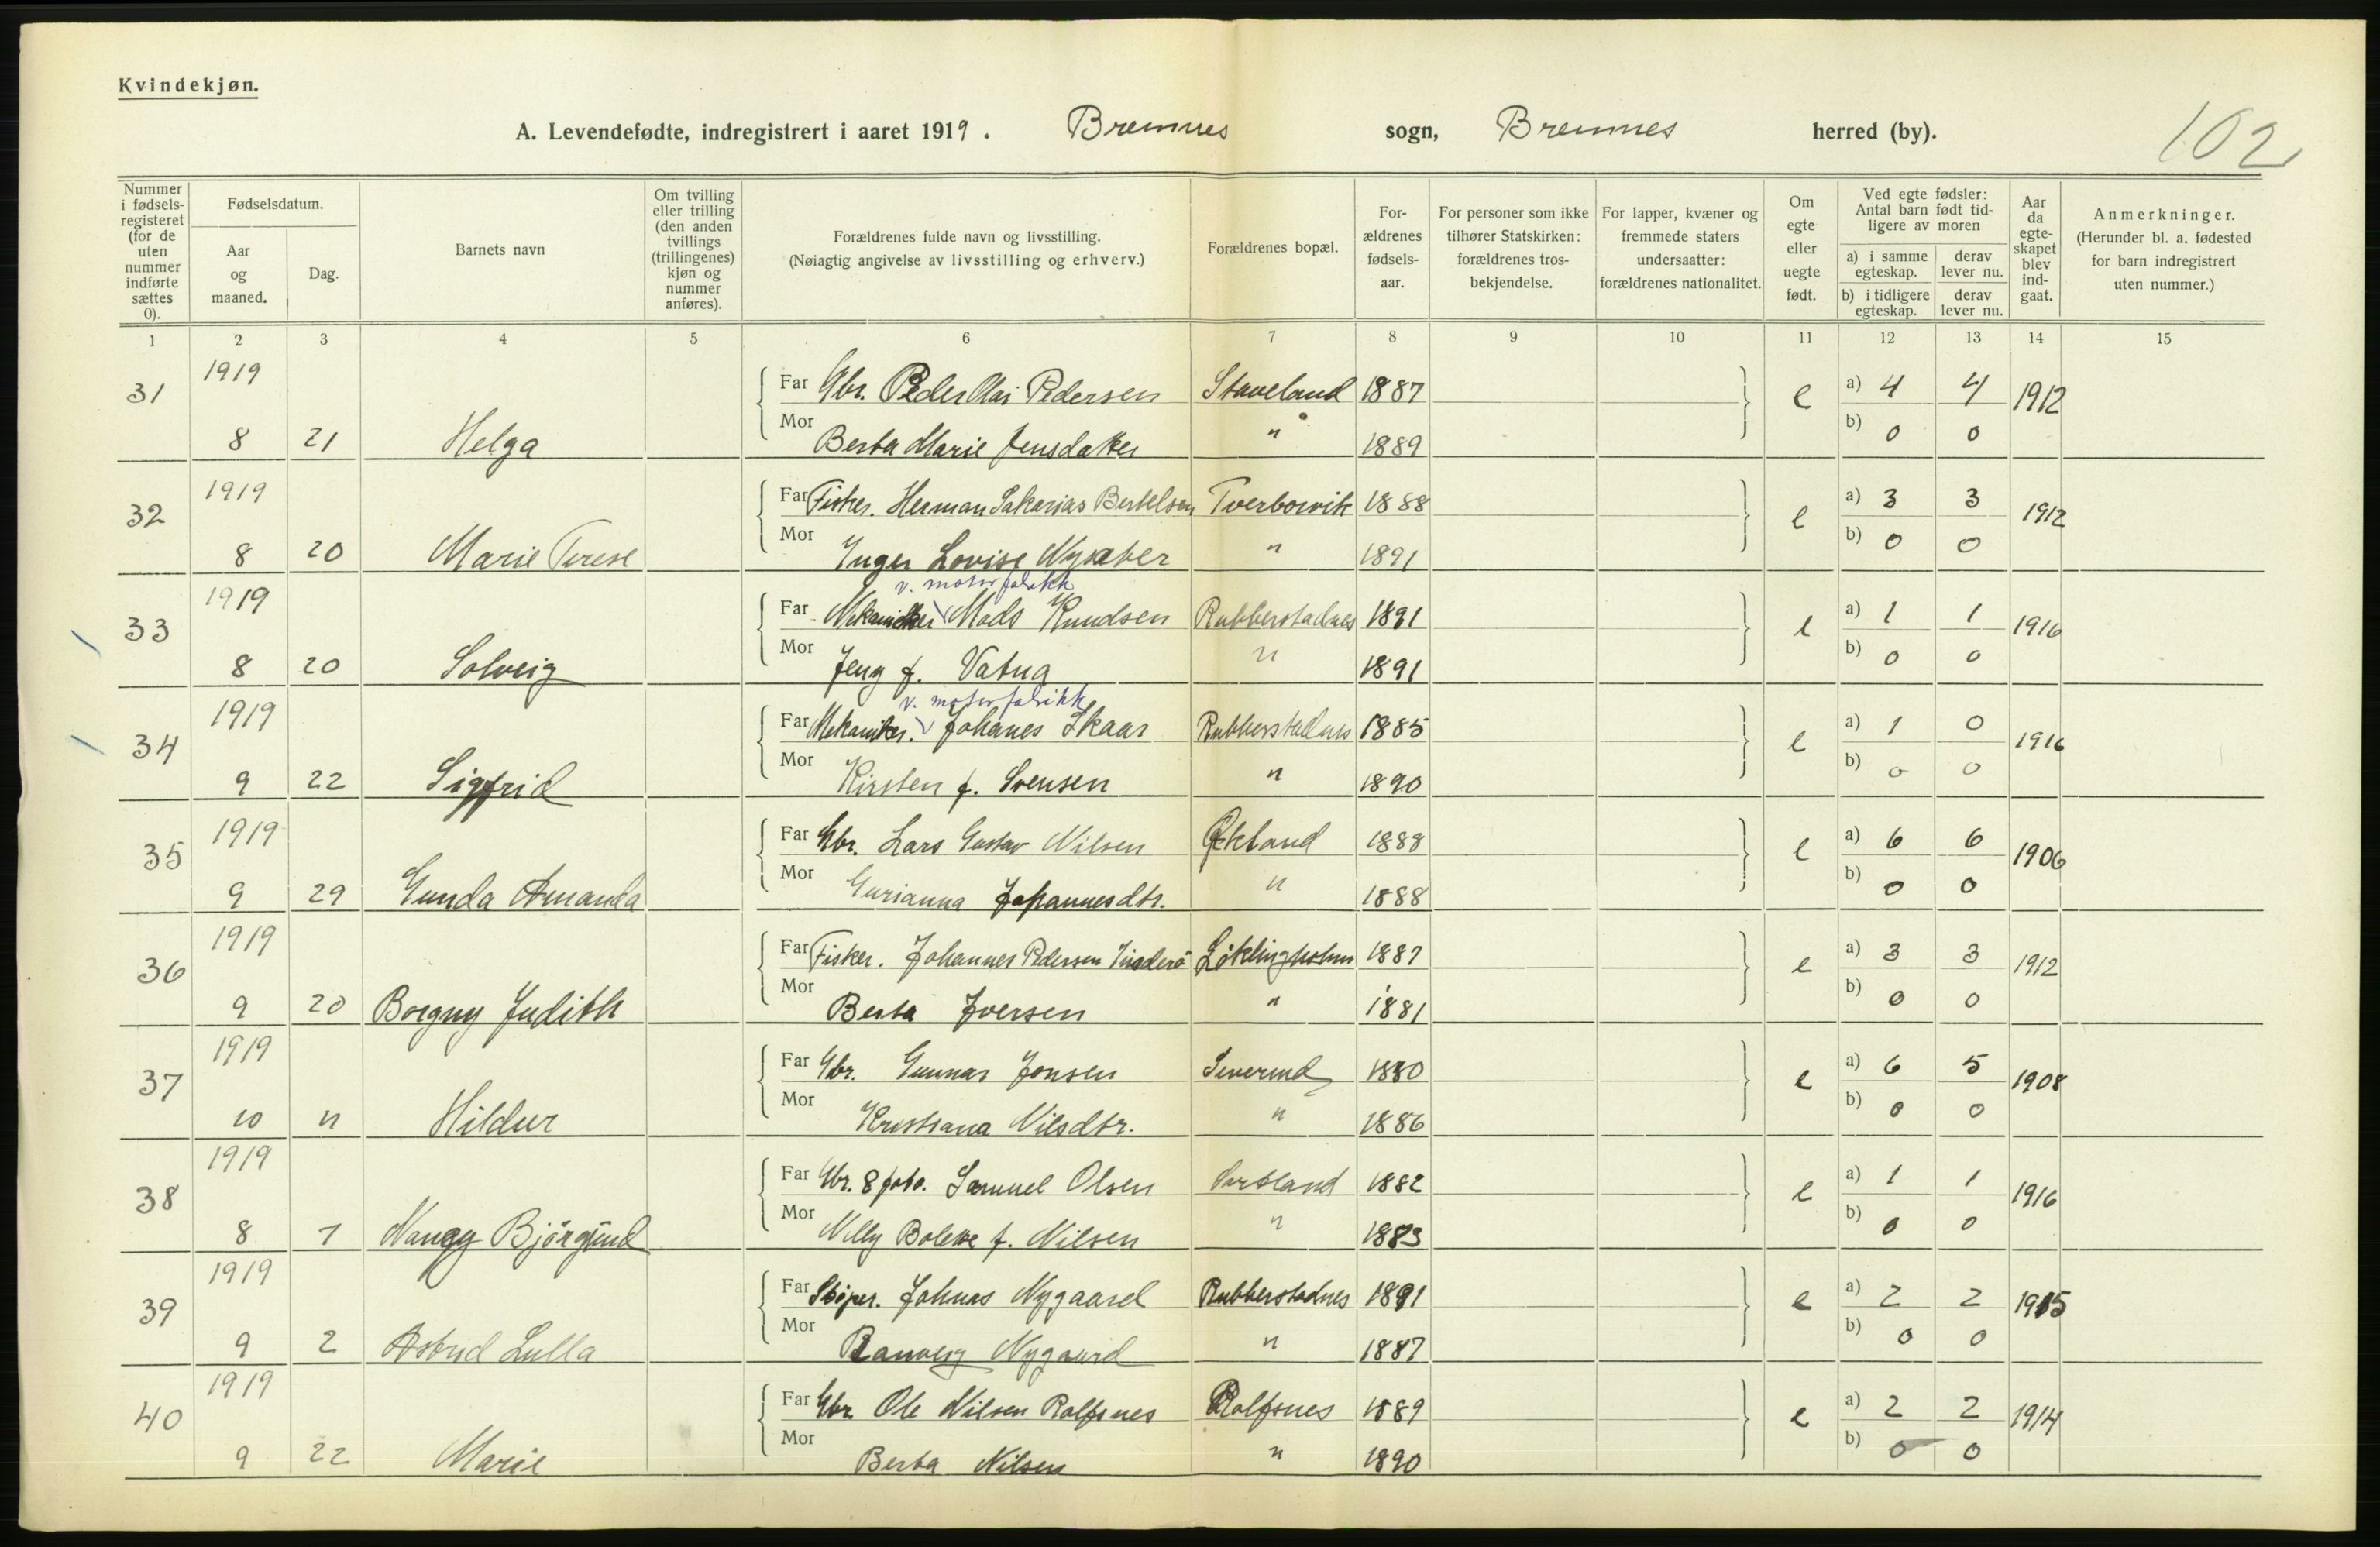 Kvindekjøn.
A. Levendefødte, indregistrert i aaret 1919. Bremnes sogn, Bremnes herred (by).
102
Nummer i fødselsregisteret (for de uten nummer indførte sættes 0).
Fødselsdatum.
Aar og maaned.
Dag.
Barnets navn
Om tvilling eller trilling (den anden tvillings (trillingenes) kjøn og nummer anføres).
Forældrenes fulde navn og livsstilling.
(Nøiagtig angivelse av livsstilling og erhverv.)
Forældrenes bopæl.
Forældrenes fødselsaar.
For personer som ikke tilhører Statskirken: forældrenes trosbekjendelse.
For lapper, kvæner og fremmede staters undersaatter: forældrenes nationalitet.
Om egte eller uegte født.
Ved egte fødsler: Antal barn født tidligere av moren
a) i samme egteskap.
derav lever nu.
b) i tidligere egteskap.
derav lever nu.
Aar da egteskapet blev indgaat.
Anmerkninger.
(Herunder bl. a. fødested for barn indregistrert uten nummer.)
1 2 3 4 5 6 7 8 9 10 11 12 13 14 15
31 1919 Far Gbr. Peder Olai Pedersen Staveland 1887 e a) 4 4 1912
8 21 Helga Mor Berta Marie Jensdatter " 1889 b) 0 0
32 1919 Far Fisker. Herman Sakarias Bertelsen Tverborvik 1888 e a) 3 3 1912
8 20 Marie Terese Mor Inger Lovise " 1891 b) 0 0
v. motorfabrikk
33 1919 Far Mekaniker Mads Knudsen Rubberstadnes 1891 e a) 1 1 1916
8 20 Solveig Mor Jeny f. Vatna " 1891 b) 0 0
v. motorfabrikk
34 1919 Far Mekaniker. Johanes Skaar Rubberstadnes 1885 e a) 1 0 1916
9 22 Sigfrid Mor Kirsten f. Svensen " 1890 b) 0 0
35 1919 Far Gbr. Lars Gustav Nilsen Økland 1888 e a) 6 6 1906
9 29 Gunda Amanda Mor Gurianna Johannesdtr. " 1888 b) 0 0
36 1919 Far Fisker. Johannes Pedersen Løklingholm 1887 e a) 3 3 1912
9 20 Borgny Judith Mor Berta Iversen " 1881 b) 0 0
37 1919 Far Gbr. Gunnar Jonsen 1880 e a) 6 5 1908
10 11 Hildur Mor Kristiana Nilsdtr. " 1886 b) 0 0
38 1919 Far Gbr. Samuel Olsen Sortland 1882 e a) 1 1 1916
8 7 Nancy Bjørgund Mor Nilly f. Nilsen " 1883 b) 0 0
39 1919 Far Støper. Johnas Nygaard Rubberstadnes 1891 e a) 2 2 1915
9 2 Astrid Lulla Mor Ranveig Nygaard " 1887 b) 0 0
40 1919 Far Gbr. Ole Nilsen Rolfsnes Rolfsnes 1889 e a) 2 2 1914
9 22 Marie Mor Berta Nilsen " 1890 b) 0 0